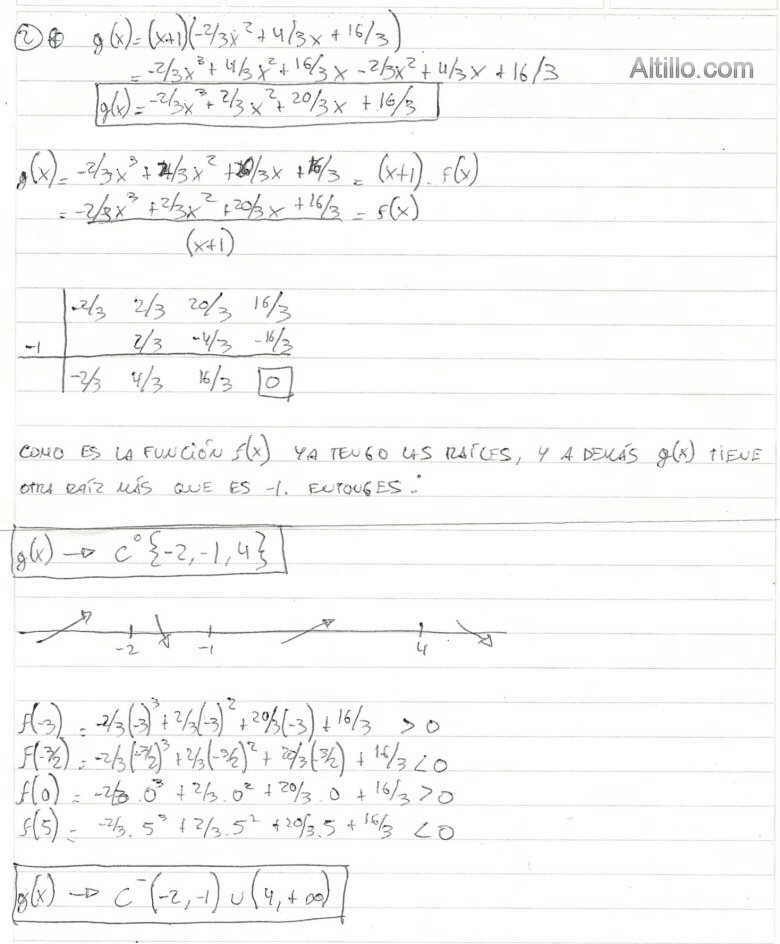 ② g(x) = (x+1)(-2/3x² + 4/3x + 16/3)
= -2/3x³ + 4/3x² + 16/3x - 2/3x² + 4/3x + 16/3
Altillo.com
g(x) = -2/3x³ + 2/3x² + 20/3x + 16/3
g(x) = -2/3x³ + 2/3x² + 20/3x + 16/3 = (x+1) . f(x)
= -2/3x³ + 2/3x² + 20/3x + 16/3 = f(x)
(x+1)
-2/3 2/3 20/3 16/3
-1 2/3 -4/3 -16/3
-2/3 4/3 16/3 0
COMO ES LA FUNCIÓN f(x) YA TENGO LAS RAÍCES, Y A DEMÁS g(x) TIENE
OTRA RAÍZ MÁS QUE ES -1. ENTONCES:
g(x) → C° {-2, -1, 4}
-2 -1 4
f(-3) = -2/3(-3)³ + 2/3(-3)² + 20/3(-3) + 16/3 > 0
f(-3/2) = -2/3(-3/2)³ + 2/3(-3/2)² + 20/3(-3/2) + 16/3 < 0
f(0) = -2/3 . 0³ + 2/3 . 0² + 20/3 . 0 + 16/3 > 0
f(5) = -2/3 . 5³ + 2/3 . 5² + 20/3 . 5 + 16/3 < 0
g(x) → C⁻ (-2, -1) ∪ (4, +∞)